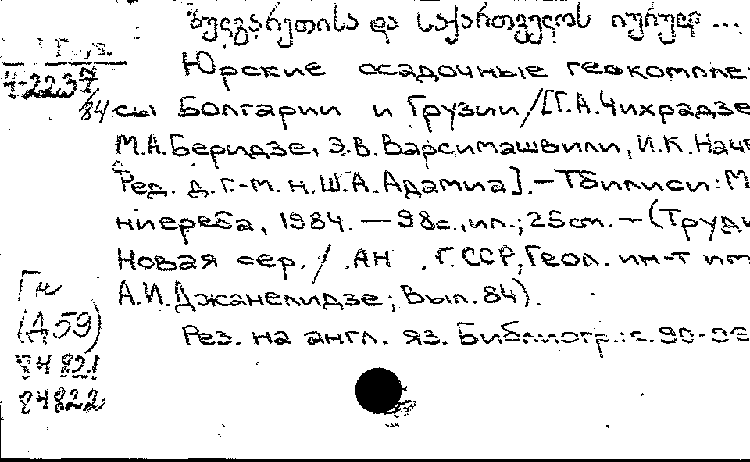 ბულგარეთისა და საქართველოს იურულ ...
Ч-2237
/84
Юрские осадочные геокомпле
сы Болгарии и Грузии/[Г.А.Чихрадзе
М.А.Беридзе, Э.В.Варсимашвили, И.К.
Ред. д. г.-м. н. Ш.А.Адамиа].-Тбилиси: М
ниереба, 1984. — 98с., ил.; 25см. — (Труды
Новая сер. / АН Г.ССР, Геол. ин-т им
А.И.Джанелидзе; Вып. 84).
Гк
(Д59)
Рез. на англ. яз. Библиогр.: с. 90-
84821
84822